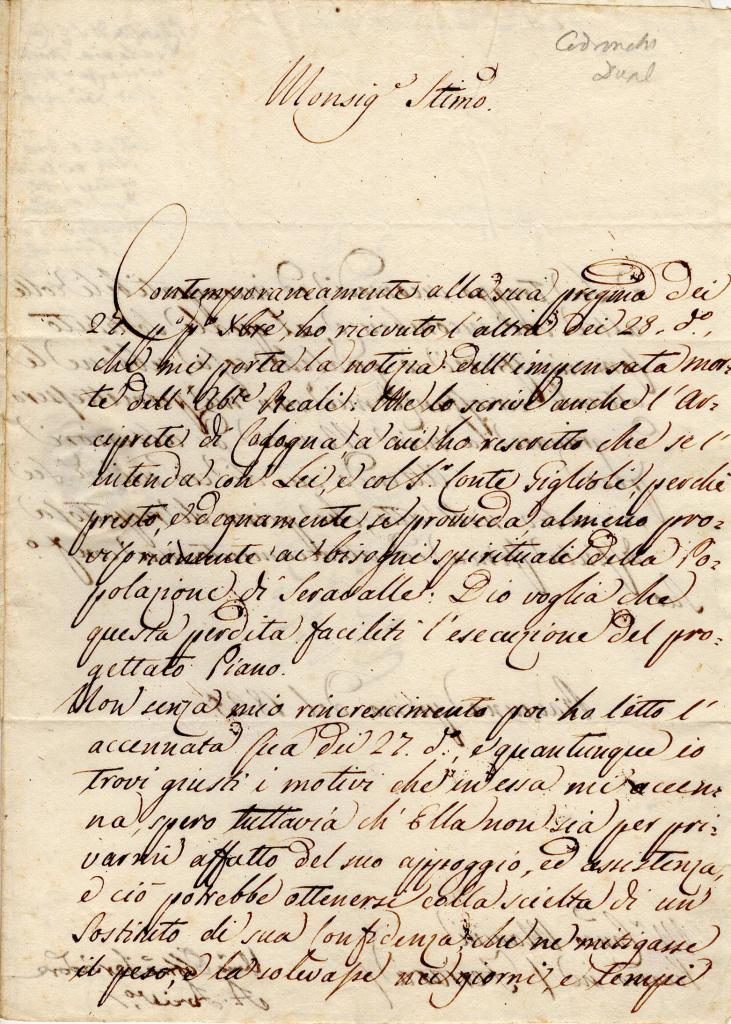 Monsig.e Stimo.
Contemporaneamente alla sua pregma dei
27. po pto Xbre, ho ricevuto l'altra dei 28. do.,
che mi porta la notizia dell'impensata mor-
te dell'Abte Reali. Me lo scrive anche l'Ar-
ciprete di Cologna, a cui ho rescritto che se l'
intenda con Lei, e col Sr. Conte Giglioli, perchè
presto, e degnamente si provveda almeno pro-
visoriamente ai bisogni spirituali della Po-
polazione di Seravalle: Dio voglia che
questa perdita faciliti l'esecuzione del pro-
gettato Piano.
Non senza mio rincrescimento poi ho letto l'
accennata sua dei 27. do., e quantunque io
trovi giusti i motivi che in essa mi accen-
na, spero tuttavia ch'Ella non sia per pri-
varmi affatto del suo appoggio, ed assistenza,
e ciò potrebbe ottenersi colla scielta di un
Sostituto di sua Confidenza, che ne mitigasse
il peso, e la sollevasse nei giorni, e Tempi